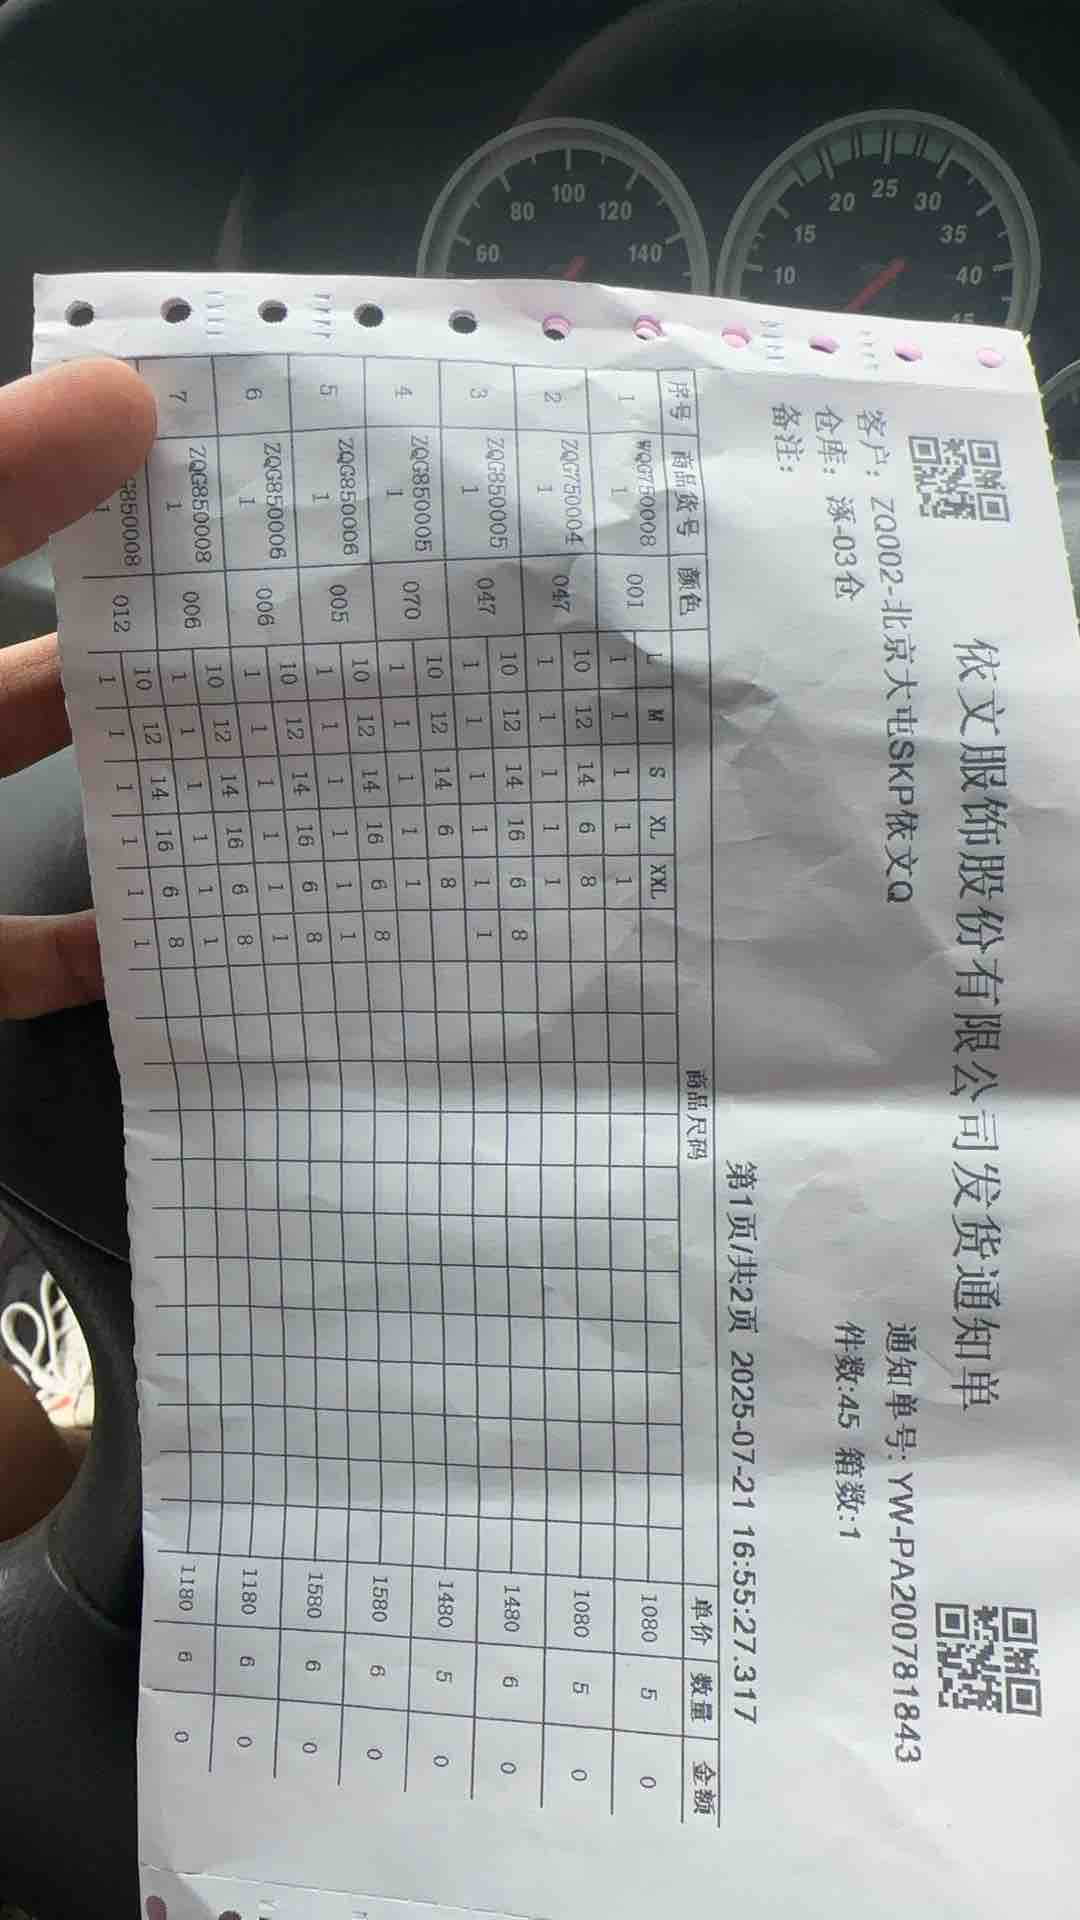 依文服饰股份有限公司发货通知单
客户: ZQ002-北京大屯SKP依文Q 通知单号: YW-PA200781843
仓库: 溪-03仓 件数:45 箱数:1
备注:
第1页/共2页 2025-07-21 16:55:27.317
序号 商品货号 颜色 商品尺码 单价 数量 金额
L M S XL XXL
1 WQG750008 1 001 1 1 1 1 1 1080 5 0
10 12 14 6 8
2 ZQG750004 1 047 1 1 1 1 1 1080 5 0
10 12 14 16 6 8
3 ZQG850005 1 047 1 1 1 1 1 1 1480 6 0
10 12 14 6 8
4 ZQG850005 1 070 1 1 1 1 1 1480 5 0
10 12 14 16 6 8
5 ZQG850006 1 005 1 1 1 1 1 1 1580 6 0
10 12 14 16 6 8
6 ZQG850006 1 006 1 1 1 1 1 1 1580 6 0
10 12 14 16 6 8
7 ZQG850008 1 006 1 1 1 1 1 1 1180 6 0
10 12 14 16 6 8
G850008 1 012 1 1 1 1 1 1 1180 6 0
60 80 100 120 140
10 15 20 25 30 35 40